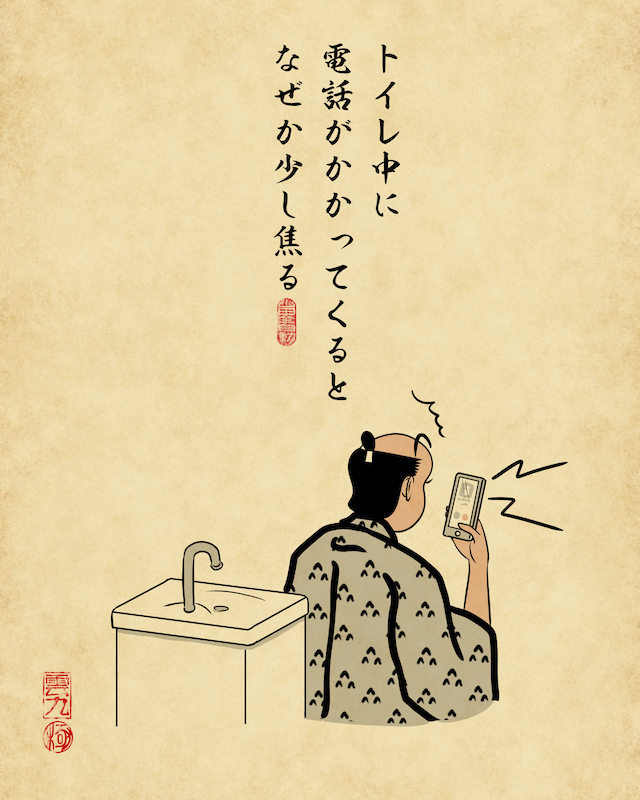 トイレ中に
電話がかかってくると
なぜか少し焦る